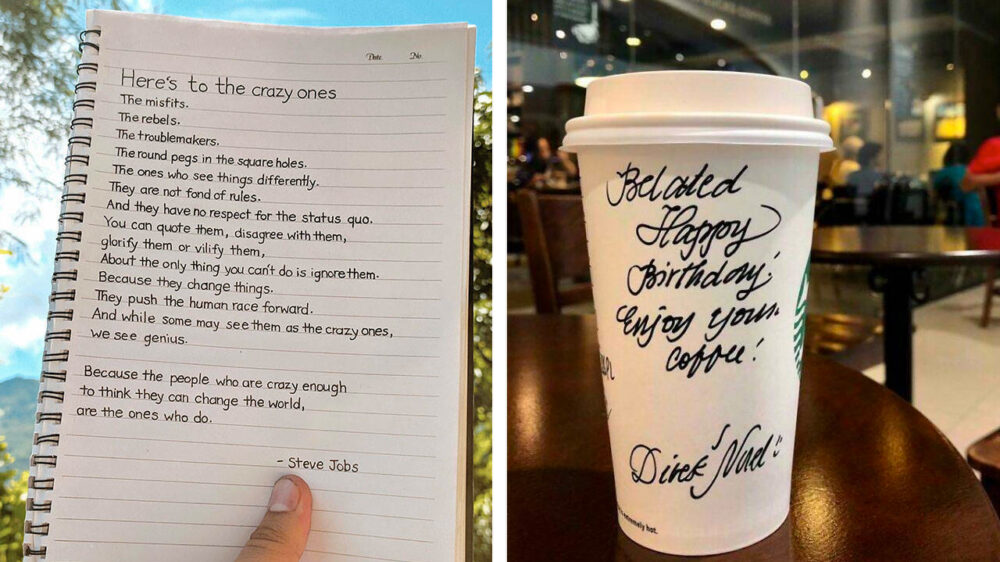 Date No.
Here's to the crazy ones
The misfits.
The rebels.
The troublemakers.
The round pegs in the square holes.
The ones who see things differently.
They are not fond of rules.
And they have no respect for the status quo.
You can quote them, disagree with them,
glorify them or vilify them,
About the only thing you can't do is ignore them.
Because they change things.
They push the human race forward.
And while some may see them as the crazy ones,
we see genius.
Because the people who are crazy enough
to think they can change the world,
are the ones who do.
- Steve Jobs
Belated
Happy
Birthday!
Enjoy your
coffee!
extremely hot.